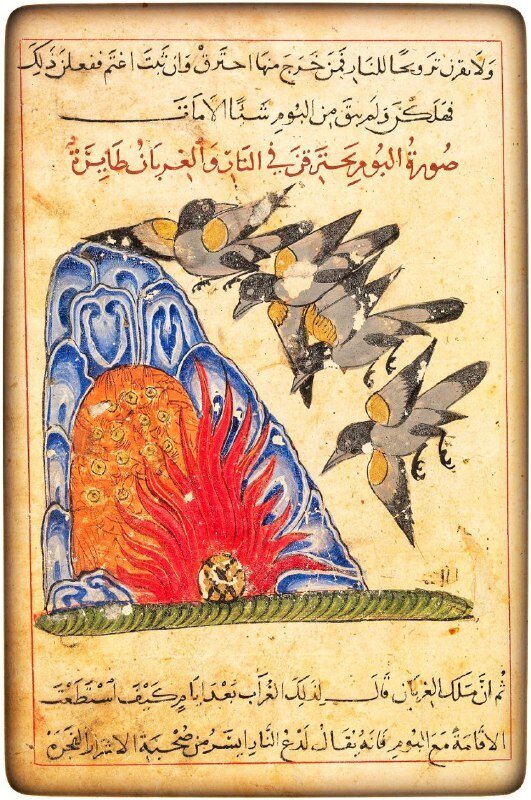 ولا يقرن ترويحا للنار فمن خرج منها احترق وان ثبت اغتم ففعلن ذلك
فهلكن ولم يبق من البوم شيئا الا مات
صورة البوم يحترقن في النار والغربان طايرة
ثم ان ملك الغربان قال لذلك الغراب بعد ايام كيف استطعت
الاقامة مع البوم فانه يقال لدغ النار ايسر من صحبة الاشرار الفجرة